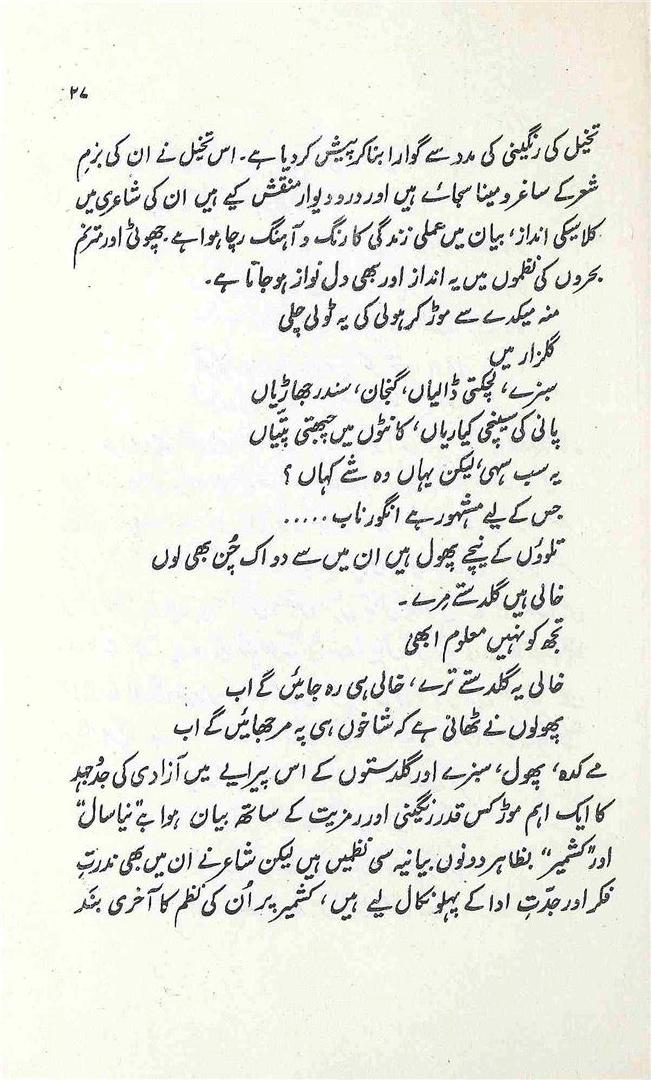 ۲۷
تخیل کی رنگینی کی مدد سے گوارا بنا کر پیش کر دیا ہے۔ اس تخیل نے ان کی بزمِ
شعر کے ساغر و مینا سجائے ہیں اور در و دیوار منقش کیے ہیں ان کی شاعری میں
کلاسیکی انداز، بیان میں عملی زندگی کا رنگ و آہنگ رچا ہوا ہے۔ چھوٹی اور مترنم
بحروں کی نظموں میں یہ انداز اور بھی دل نواز ہو جاتا ہے۔
منہ میکدے سے موڑ کر ہولی کی یہ ٹولی چلی
گلزار میں
سبزے، لچکتی ڈالیاں، گنجان، سندر جھاڑیاں
پانی کی سینچی کیاریاں، کانٹوں میں چبھتی پتیاں
یہ سب سہی، لیکن یہاں وہ شے کہاں ؟
جس کے لیے مشہور ہے انگور ناب .....
تلووں کے نیچے پھول ہیں ان میں سے دو اک چُن بھی لوں
خالی ہیں گلدستے مِرے۔
تجھ کو نہیں معلوم ابھی
خالی یہ گلدستے ترے، خالی ہی رہ جائیں گے اب
پھولوں نے ٹھانی ہے کہ شاخوں ہی پہ مرجھائیں گے اب
مے کدہ، پھول، سبزے اور گلدستوں کے اس پیرایے میں آزادی کی جدُوجہد
کا ایک اہم موڑ کس قدر رنگینی اور رمزیت کے ساتھ بیان ہوا ہے "نیا سال"
اور "کشمیر" بظاہر دونوں بیانیہ سی نظمیں ہیں لیکن شاعر نے ان میں بھی ندرتِ
فکر اور جدّتِ ادا کے پہلو نکال لیے ہیں، کشمیر پر اُن کی نظم کا آخری بند